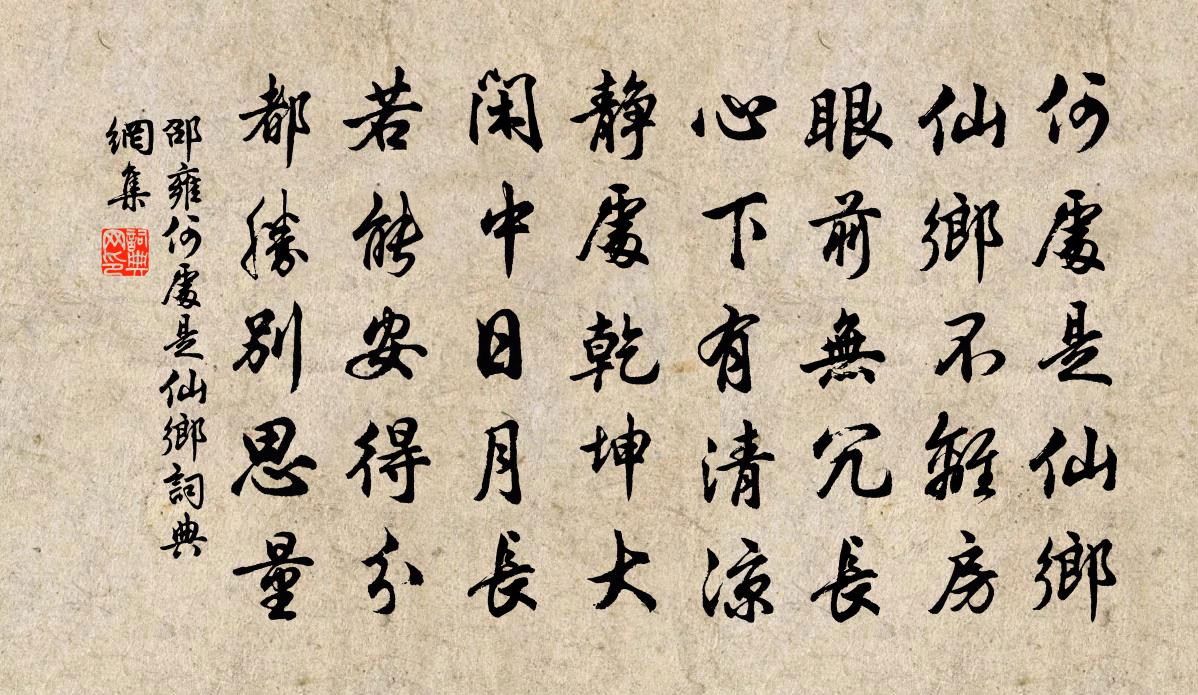 何處是仙鄉
仙鄉不離房
眼前無冗長
心下有清涼
靜處乾坤大
閑中日月長
若能安得分
都勝別思量
邵雍何處是仙鄉詞典
網集
詞典
网印